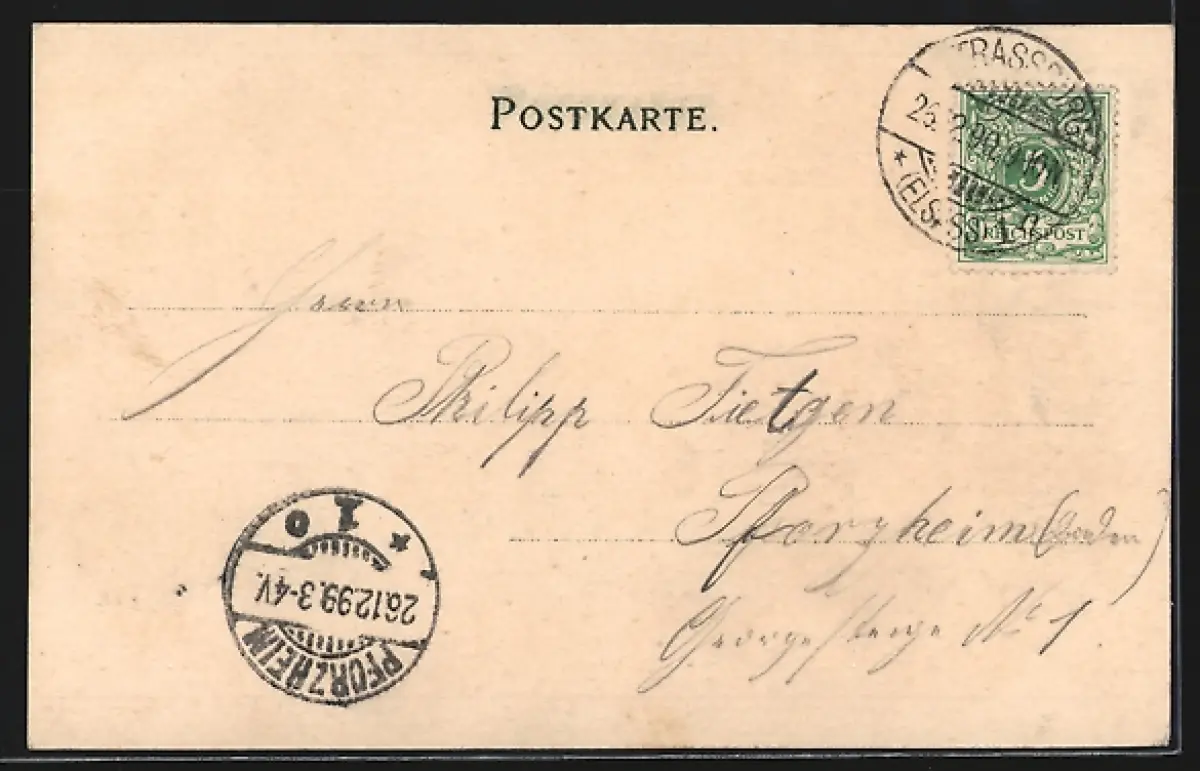 POSTKARTE.
STRASSBURG
26.12.99
* (ELSASS) 1
5
REICHSPOST
Herrn
Philipp Fietgen
Pforzheim (Baden)
Georgestrasse No 1
* 1 0
26.12.99.3-4V.
PFORZHEIM